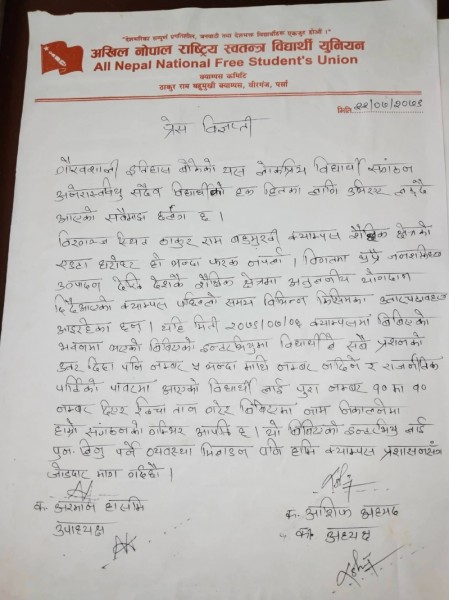 "देशभरिका सम्पूर्ण प्रगतिशील, जनवादी तथा देशभक्त विद्यार्थीहरू एकजुट होऔं !"
अखिल नेपाल राष्ट्रिय स्वतन्त्र विद्यार्थी युनियन
All Nepal National Free Student's Union
क्याम्पस कमिटि
ठाकुर राम बहुमुखी क्याम्पस, वीरगंज, पर्सा
मिति २२/०७/२०७५
प्रेस विज्ञप्ती
गौरवशाली इतिहास बोकेको यस लोकप्रिय विद्यार्थी संगठन
अनेरास्ववियु सदैव विद्यार्थीको हक हितका लागि लड्दै
आएको सर्वमान्य छ ।
विरगंज स्थित ठाकुर राम बहुमुखी क्याम्पस शैक्षिक क्षेत्रको
एउटा धरोहर हो भन्दा फरक नपर्ला । विगतमा थुप्रै जनशक्ति
उत्पादन देशकै शैक्षिक क्षेत्रमा अतुलनीय योगदान
दिदै आएको क्याम्पस पछिल्लो समय विभिन्न किसिमका
आइरहेका छन् । यहि मिती २०७५/०७/०६ क्याम्पसमा विविएको
भवनमा भएको विविएको इन्टरभिउमा विद्यार्थी ले सबै प्रश्नको
उत्तर दिदा पनि नम्बर ५ भन्दा माथि नम्बर नदिने र राजनीतिक
पार्टिको पावरमा आएको विद्यार्थी लाई पुरा नम्बर १० मा १०
नम्बर दिएर विविएमा नाम निकालनेमा
हाम्रो संगठनको गम्भिर आपत्ति छ । यो विविएको इन्टरभिउ लाई
पुनः लिनु पर्ने व्यवस्था मिलाउन पनि हामि क्याम्पस प्रशासनसंग
जोडदार माग गर्दछौ ।
क. अरमान हासमि
उपाध्यक्ष
क. आशिष
अध्यक्ष